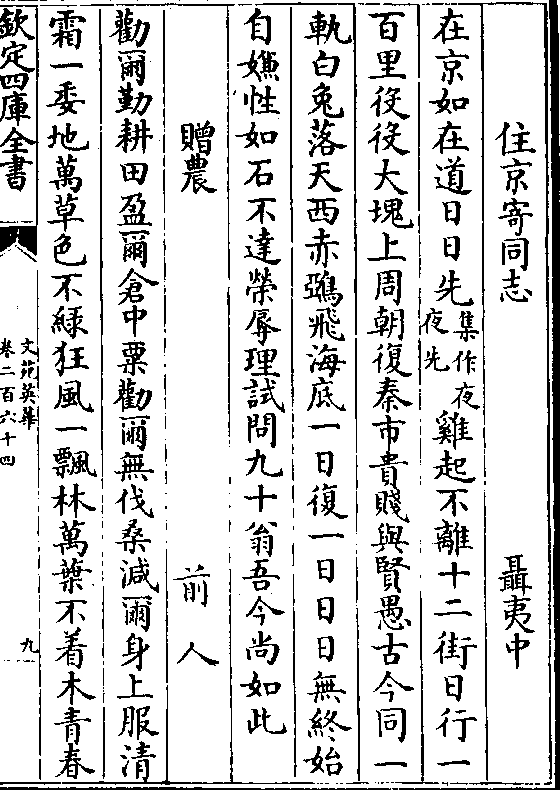 住京寄同志　聶夷中
在京如在道日日先集作夜夜先雞起不離十二街日行一
百里役役大塊上周朝復秦市貴賤與賢愚古今同一
軌白兎落天西赤鴉飛海底一日復一日日日無終始
自嫌性如石不達榮辱理試問九十翁吾今尚如此
贈農　前人
勸爾勤耕田盈爾倉中粟勸爾無伐桑減爾身上服清
霜一委地萬草色不緑狂風一飄林萬葉不着木青春
欽定四庫全書
文苑英華
卷二百六十四
九